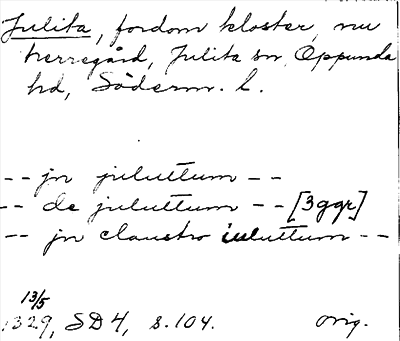 Julita, fordom kloster, nu
herregård, Julita sn, Oppunda
hd, Söderm. l.
-- jn juluttum --
-- de juluttum -- [3ggr]
-- jn claustro iuluttum --
13/5
1329, SD4, s. 104. orig.